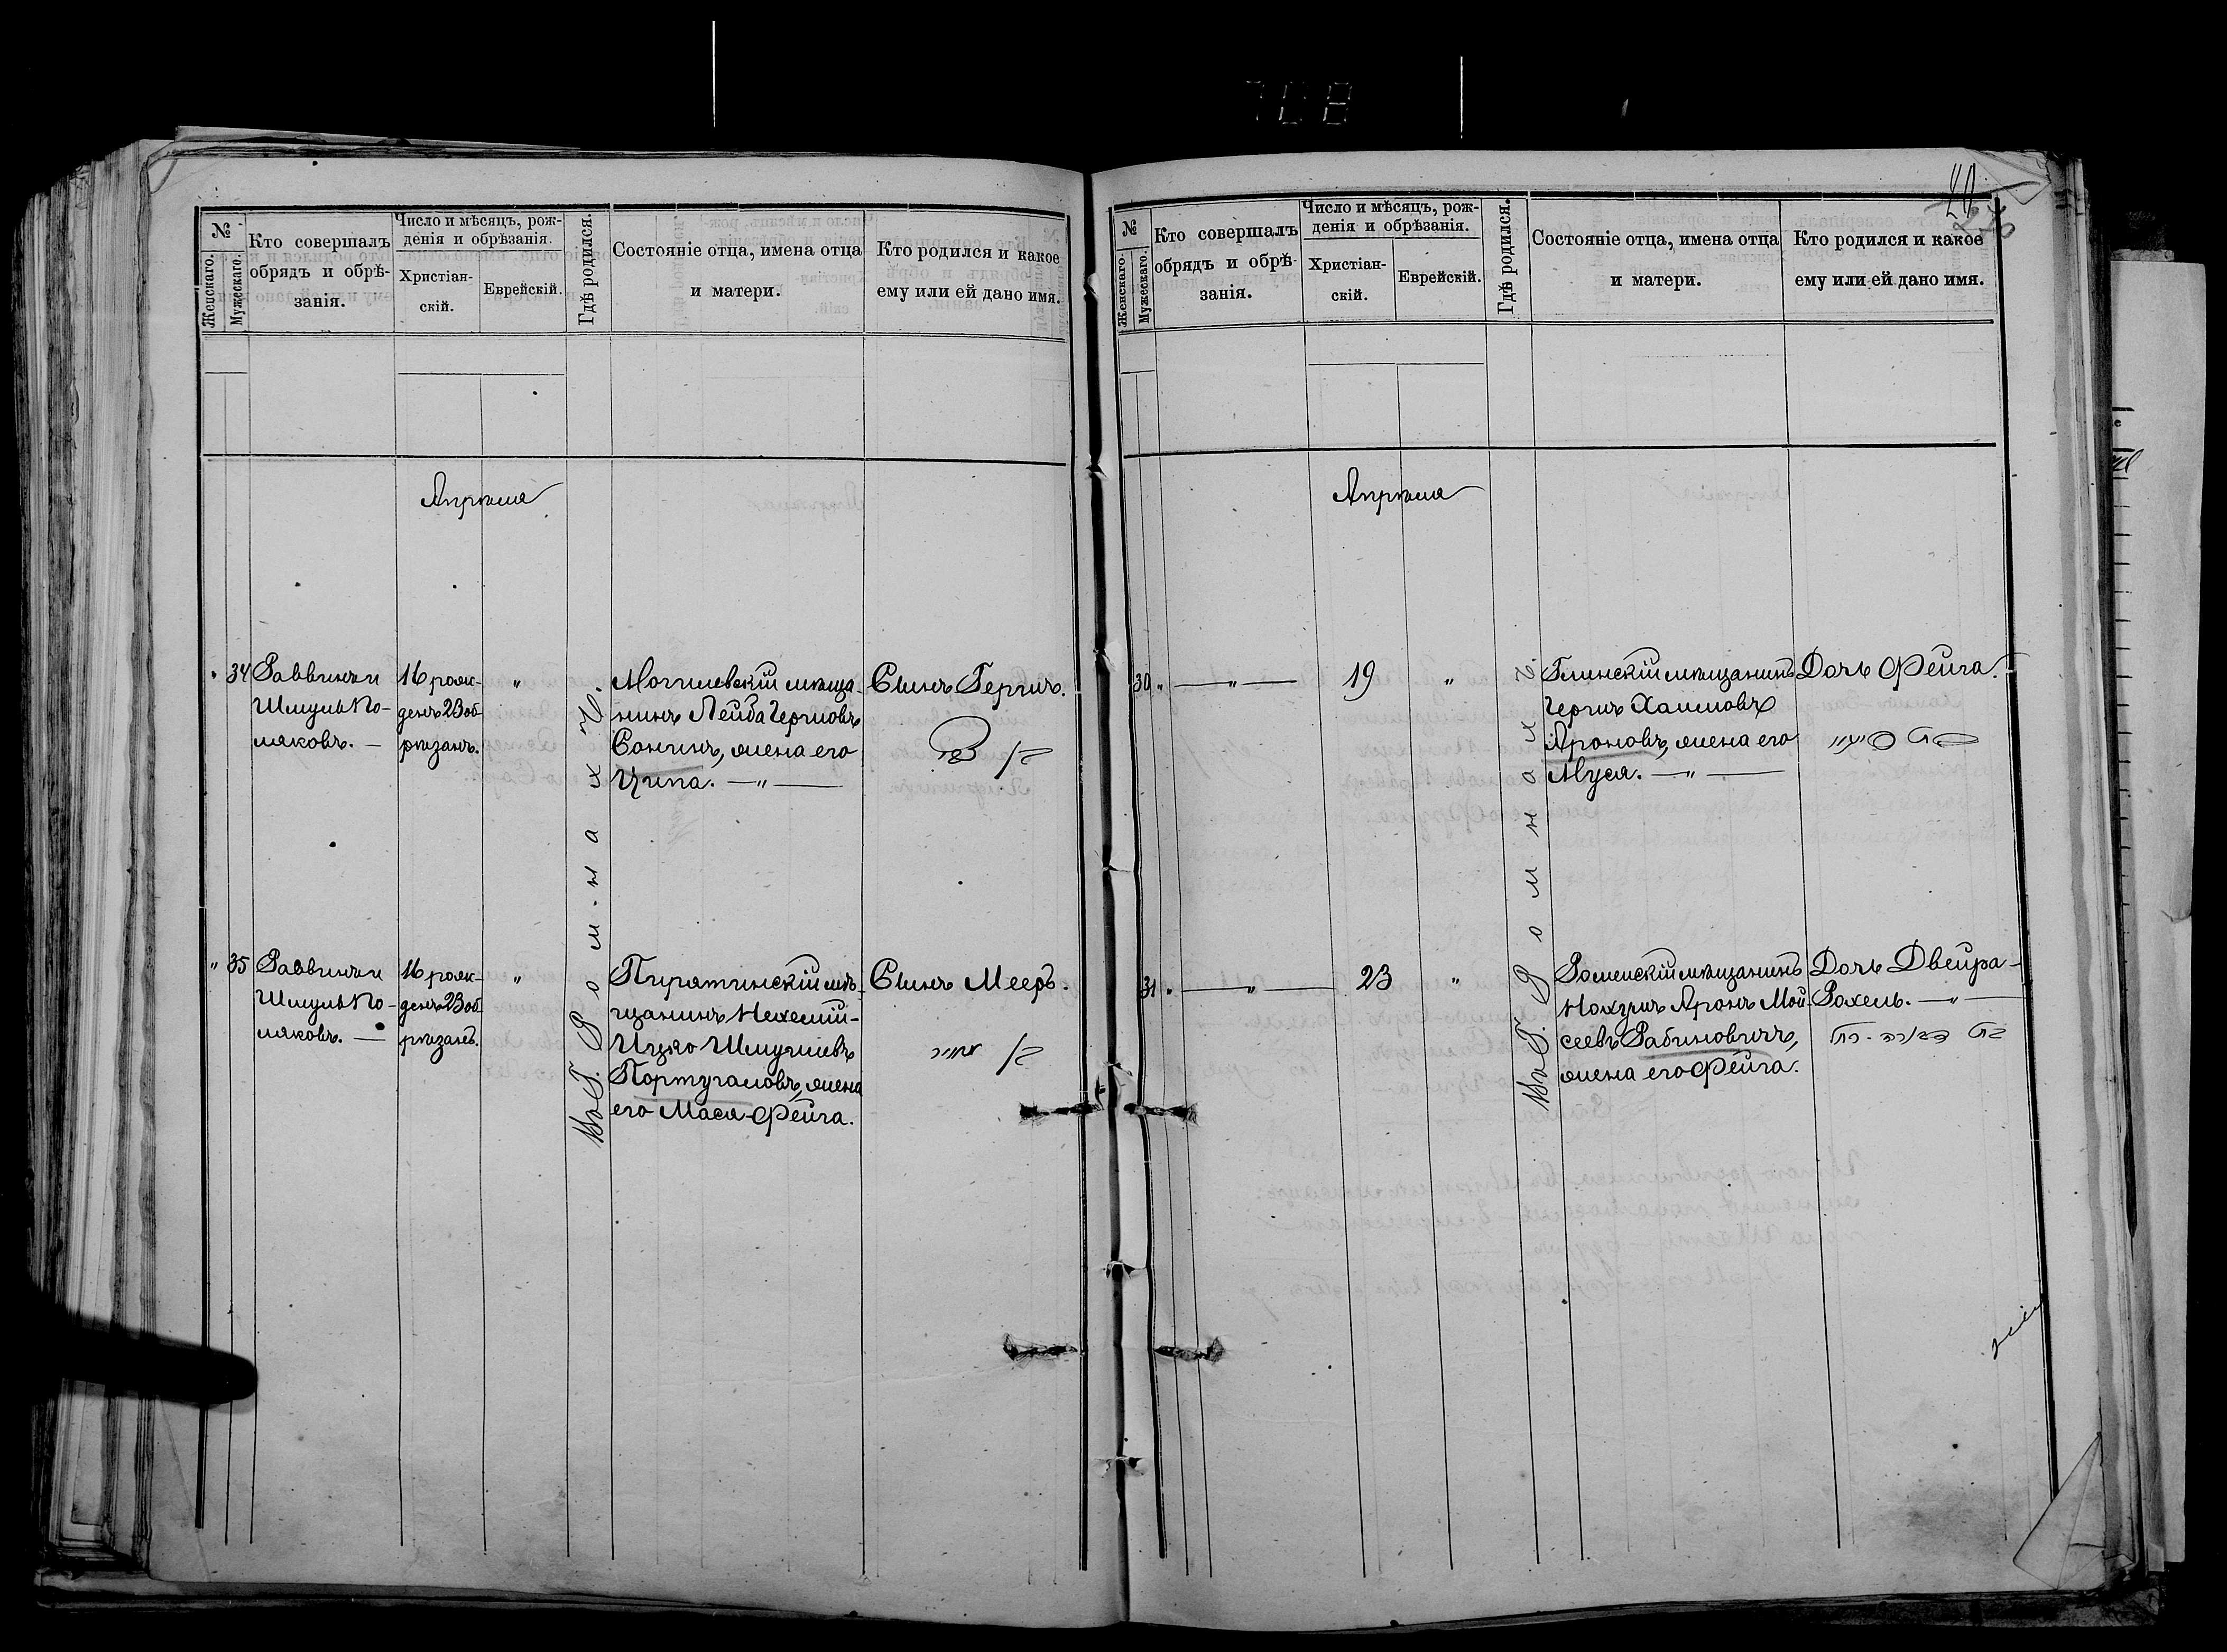 708
№
Женскаго.
Мужескаго.
Кто совершалъ
обрядъ и обрѣ-
занія.
Число и мѣсяцъ, рож-
денія и обрѣзанія.
Христіан-
скій.
Еврейскій.
Гдѣ родился.
Состояніе отца, имена отца
и матери.
Кто родился и какое
ему или ей дано имя.
Апрѣля
Въ Г. Ромнахъ.
" 34
Раввинъ и
Шмуль По-
ляковъ. —
16 рож-
денъ 23 об-
рѣзанъ.
"
Могилевскій мѣща-
нинъ Лейба Гершовъ
Сонинъ, жена его
Ципа. — " —
Сынъ Гершъ.
" 35
Раввинъ и
Шмуль По-
ляковъ. —
16 рож-
денъ 23 об-
рѣзанъ.
"
Пирятинскій мѣ-
щанинъ Нехемій-
Ицко Шмулевъ
Португаловъ, жена
его Мася-Фейга.
Сынъ Мееръ.
מאיר
20
№
Женскаго.
Мужескаго.
Кто совершалъ
обрядъ и обрѣ-
занія.
Число и мѣсяцъ, рож-
денія и обрѣзанія.
Христіан-
скій.
Еврейскій.
Гдѣ родился.
Состояніе отца, имена отца
и матери.
Кто родился и какое
ему или ей дано имя.
Апрѣля
Въ Г. Ромнахъ.
30 " — " —
19
"
Глинскій мѣщанинъ
Гершъ Хаимовъ
Ароновъ, жена его
Муся. — " —
Дочь Фейга.
31 " — " —
23
"
Роменскій мѣщанинъ
Нохумъ Аронъ Мой-
сеевъ Рабиновичъ,
жена его Фейга.
Дочь Двейра-
Рохель. — " —